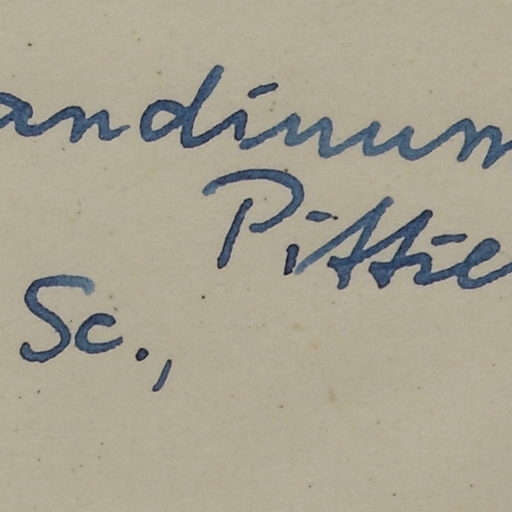 andinum
Pittie
Sc.,